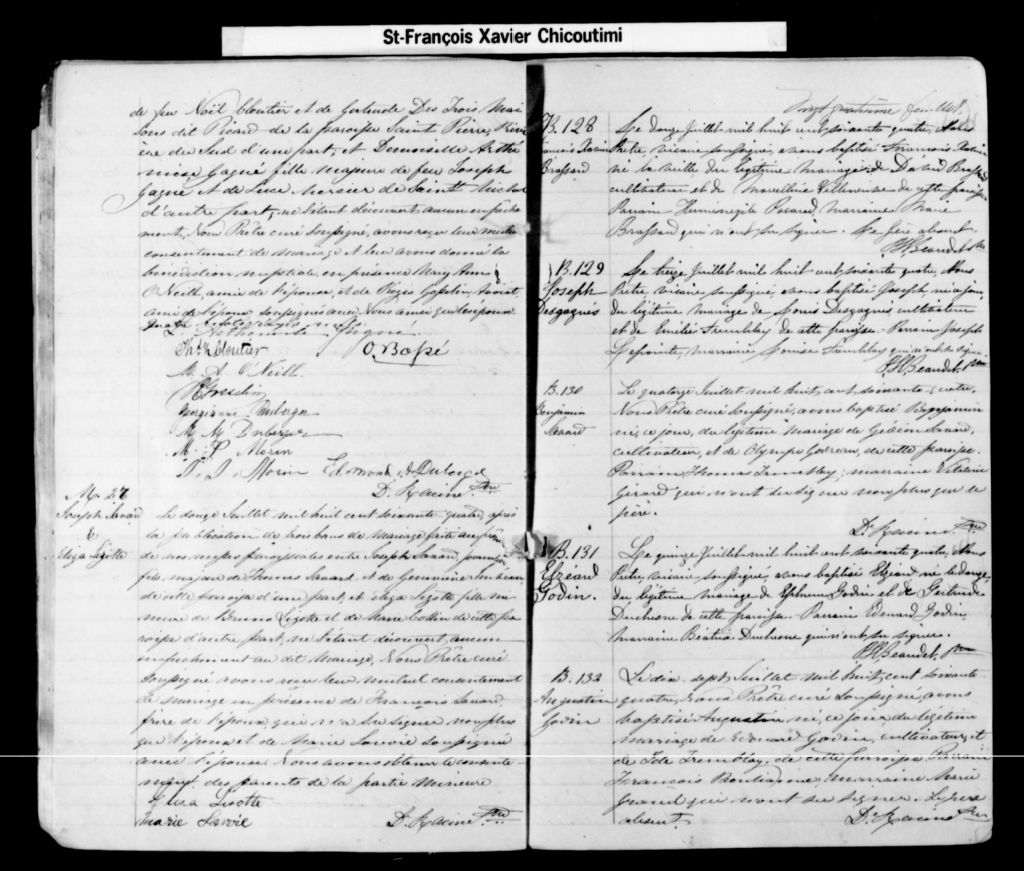 St-François Xavier Chicoutimi
de feu Noël Cloutier et de Gertrude Des Trois Mai
sons dit Picard de la paroisse Saint Pierre, Rivi
ère du Sud d'une part, et Demoiselle Arthé
mise Gagné fille majeure de feu Joseph
Gagné et de Luce Mercier de Saint Michel
d'autre part, ne s'étant découvert aucun empêche
ment, Nous Prêtre curé soussigné, avons reçu leur mutuel
consentement de mariage et leur avons donné la
bénédiction nuptiale en présence Mary Ann
O'Neill, amie de l'épouse, et de Avocat,
ami de l'époux soussignés avec Nous ainsi que les époux
Cloutier O. Bossé
M. A. O'Neill
Georgianna Duberger
M. M. Duberger
M. P. Morin
Morin Edmond A Duberger
D. Racine Ptre
M. 27
Joseph Savard
&
Eliza Lizotte
Le douze Juillet mil huit cent soixante quatre, après
la publication de trois bans de Mariage faite au prône
de nos messes paroissiales entre Joseph Savard, journalier,
fils majeur de Thomas Savard et de Geneviève
de cette paroisse d'une part, et Eliza Lizotte fille mi
neure de Bruno Lizotte et de Marie de cette pa
roisse d'autre part, ne s'étant découvert aucun
empêchement au dit Mariage, Nous Prêtre curé
soussigné avons reçu leur mutuel consentement
de mariage en présence de François Savard,
frère de l'époux qui n'a su signer non plus
que l'époux et de Marie Savoie soussignée
avec l'épouse. Nous avons obtenu le consente-
ment des parents de la partie Mineure
Eliza Lisotte
Marie Savoie D. Racine Ptre
Vingt quatrième feuillet
B. 128
François
Brassard
Le douze Juillet mil huit cent soixante quatre, Nous
Prêtre, vicaire soussigné, avons baptisé François
né la veille du légitime mariage de David Brassard
cultivateur et de Marcelline Villeneuve de cette paroisse.
Parrain Herménégilde marraine Marie
Brassard qui n'ont su signer. Le père absent.
Beaudet Ptre
B. 129
Joseph
Desgagnés
Le treize Juillet mil huit cent soixante quatre, Nous
Prêtre, vicaire soussigné, avons baptisé Joseph, né ce jour,
du légitime mariage de Louis Desgagnés cultivateur
et de Emilie Tremblay de cette paroisse. Parrain Joseph
Lapointe, marraine Louise Tremblay qui n'ont su signer.
Beaudet, Ptre
B. 130
Benjamin
Savard
Le quatorze Juillet mil huit cent soixante quatre,
Nous Prêtre curé soussigné, avons baptisé Benjamin
né, ce jour, du légitime mariage de Gédéon Savard,
cultivateur, et de Olympe Gaudreau, de cette paroisse.
Parrain Thomas Tremblay; marraine
Girard qui n'ont su signer non plus que le
père.
D. Racine Ptre
B. 131
Elzéard
Godin.
Le quinze Juillet mil huit cent soixante quatre, Nous
Prêtre, vicaire soussigné, avons baptisé Elzéard né le douze
du légitime mariage de Ephrem Godin et de Gertrude
Duchesne de cette paroisse. Parrain Edouard Godin,
marraine Béatrice Duchesne qui n'ont su signer.
Beaudet, Ptre
B. 132
Augustin
Godin
Le dix sept Juillet mil huit cent soixante
quatre, Nous Prêtre curé soussigné, avons
baptisé Augustin né, ce jour du légitime
mariage de Edouard Godin, cultivateur, et
de Ide Tremblay, de cette paroisse. Parrain
François Boulianne, marraine Marie
qui n'ont su signer. Le père
absent.
D. Racine Ptre